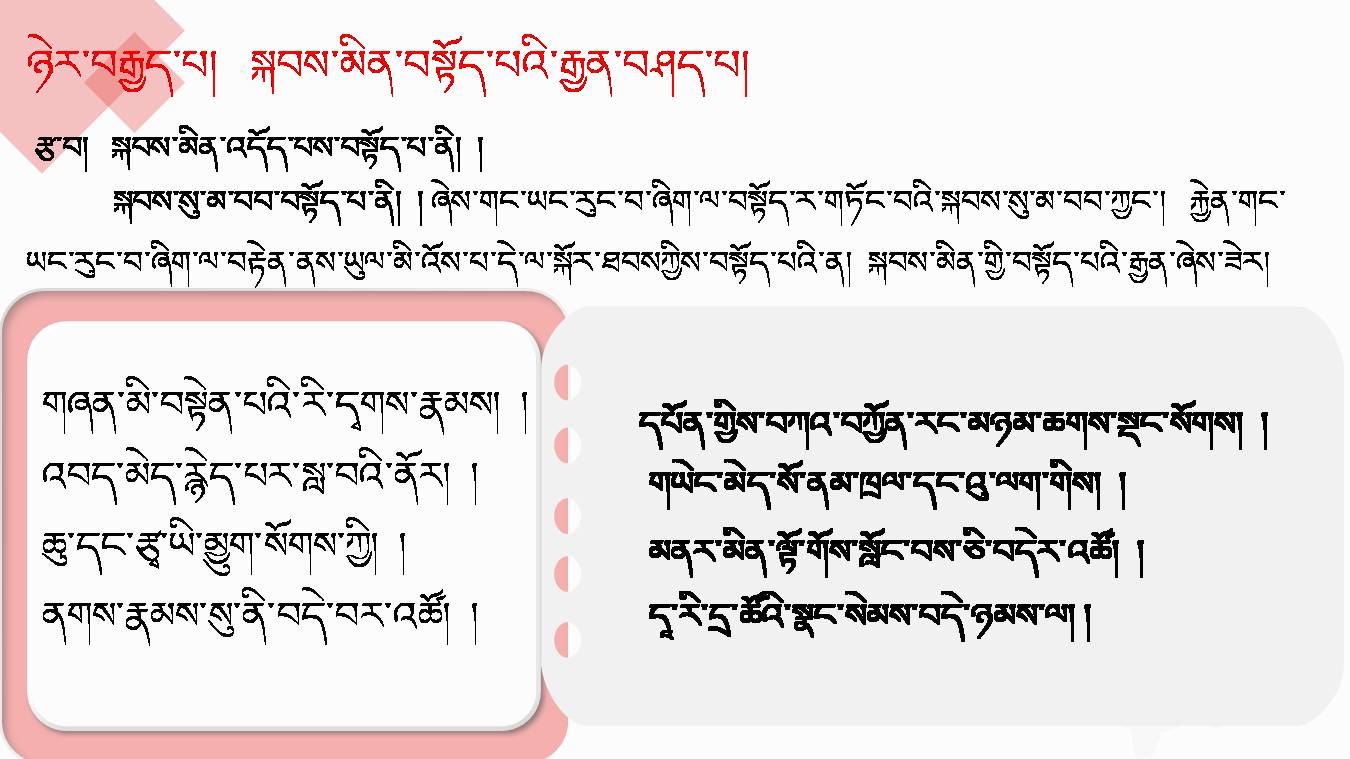 ཉེར་བརྒྱད་པ།  སྐབས་མིན་བསྟོད་པའི་རྒྱན་བཤད་པ།
རྩ་བ།  སྐབས་མིན་འདོད་པས་བསྟོད་པ་ནི། །
སྐབས་སུ་མ་བབ་བསྟོད་པ་ནི། །ཞེས་གང་ཡང་རུང་བ་ཞིག་ལ་བསྟོད་ར་གཏོང་བའི་སྐབས་སུ་མ་བབ་ཀྱང་། རྐྱེན་གང་
ཡང་རུང་བ་ཞིག་ལ་བརྟེན་ནས་ཡུལ་མི་འོས་པ་དེ་ལ་སྐོར་ཐབསཀྱིས་བསྟོད་པའི་ན། སྐབས་མིན་གྱི་བསྟོད་པའི་རྒྱན་ཞེས་ཟེར།
གཞན་མི་བསྟེན་པའི་རི་དྭགས་རྣམས། །
འབད་མེད་རྙེད་པར་སླ་བའི་ནོར། །
ཆུ་དང་རྩྭ་ཡི་མྱུག་སོགས་ཀྱི། །
ནགས་རྣམས་སུ་ནི་བདེ་བར་འཚོ། །
དཔོན་གྱིས་བཀའ་བཀྱོན་རང་མཉམ་ཆགས་སྡང་སོགས། །
གཡེང་མེད་སོ་ནམ་ཁྲལ་དང་འུ་ལག་གིས། །
མནར་མིན་ལྟོ་གོས་སློང་བས་ཅི་བདེར་འཚོ། །
དཱ་རི་དྲ་ཚོའི་སྣང་སེམས་བདེ་ཉམས་ལ། །